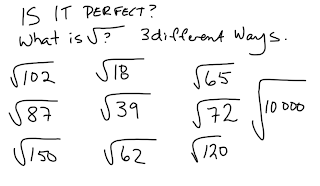 IS IT PERFECT?
What is √? 3 different ways.
√102 √18 √65
√87 √39 √72 √10 000
√150 √62 √120